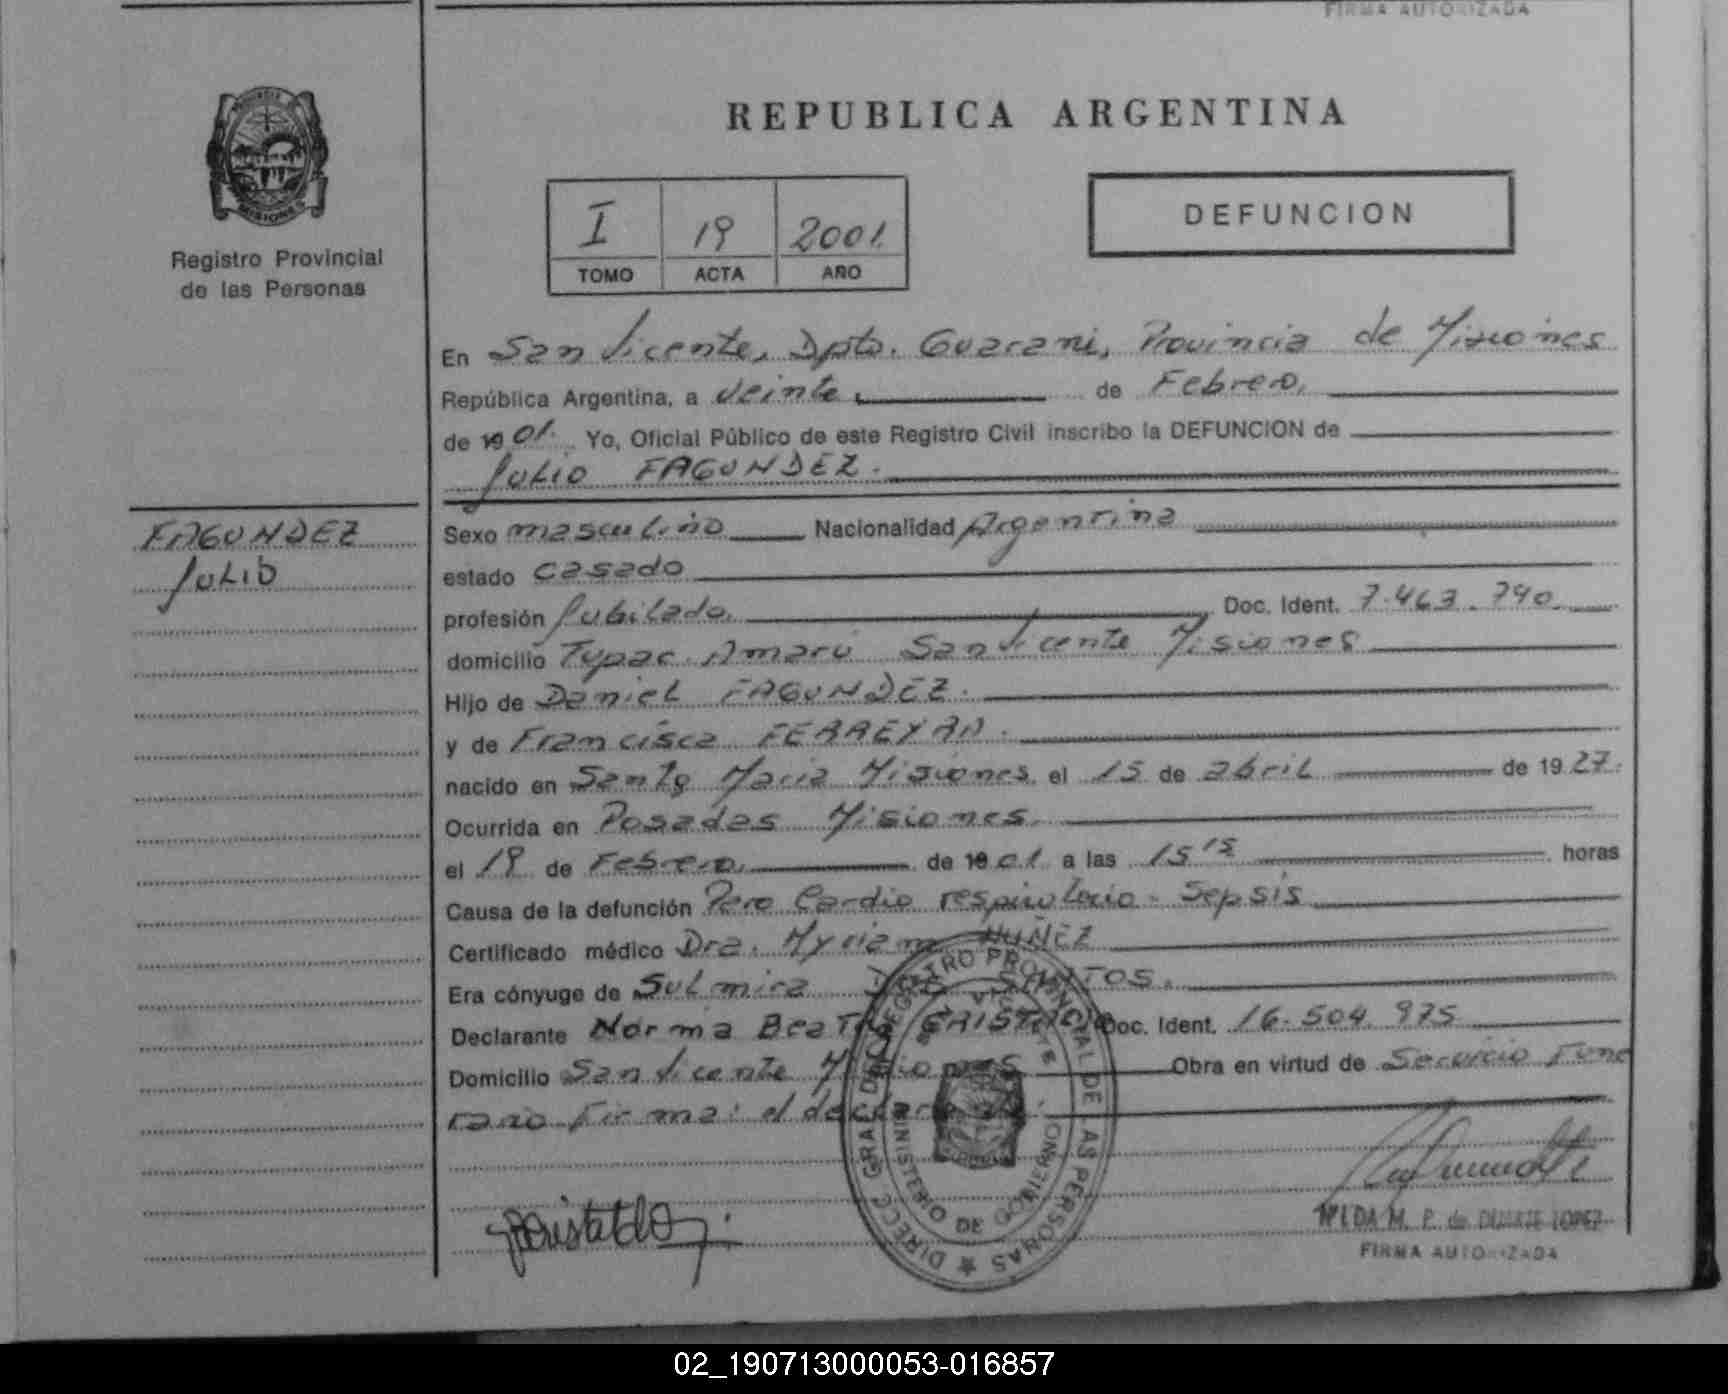 FIRMA AUTORIZADA
PROVINCIA DE
MISIONES
Registro Provincial
de las Personas
REPUBLICA ARGENTINA
I 19 2001.
TOMO ACTA AÑO
DEFUNCION
En San Vicente, Dpto. Guarani, Provincia de Misiones
República Argentina, a veinte, de Febrero,
de 19 01. Yo, Oficial Público de este Registro Civil inscribo la DEFUNCION de
Julio FAGUNDEZ.
FAGUNDEZ
Julio
Sexo masculino Nacionalidad Argentina
estado casado
profesión Jubilado. Doc. Ident. 7.463.740
domicilio Tupac Amarú San Vicente Misiones
Hijo de Daniel FAGUNDEZ.
y de Francisca FERREYRA.
nacido en Santa Maria Misiones, el 15 de abril de 19 27.
Ocurrida en Posadas Misiones.
el 19 de Febrero, de 19 01 a las 15 15 horas
Causa de la defunción Paro Cardio respiratorio - Sepsis
Certificado médico Dra. Myriam NUÑEZ
Era cónyuge de Sulmira DOS SANTOS.
Declarante Norma Beatriz CRISTALDO Doc. Ident. 16.504.975
Domicilio San Vicente Misiones Obra en virtud de Servicio Fune
rario Firma: el declarante.
DIRECC. GRAL. DE REGISTRO PROVINCIAL DE LAS PERSONAS
SAN VICENTE
MINISTERIO DE GOBIERNO
NILDA M. P. de DUARTE LOPEZ
FIRMA AUTORIZADA
02_190713000053-016857